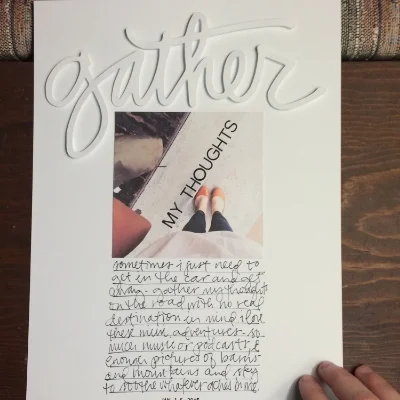 gather
MY THOUGHTS
sometimes i just need to
get in the car and get
away - gather my thoughts
on the road with no real
destination in mind i love
these mini adventures - so
much music or podcasts &
enough pictures of barns
and mountains and sky
to soothe whatever aches in me.